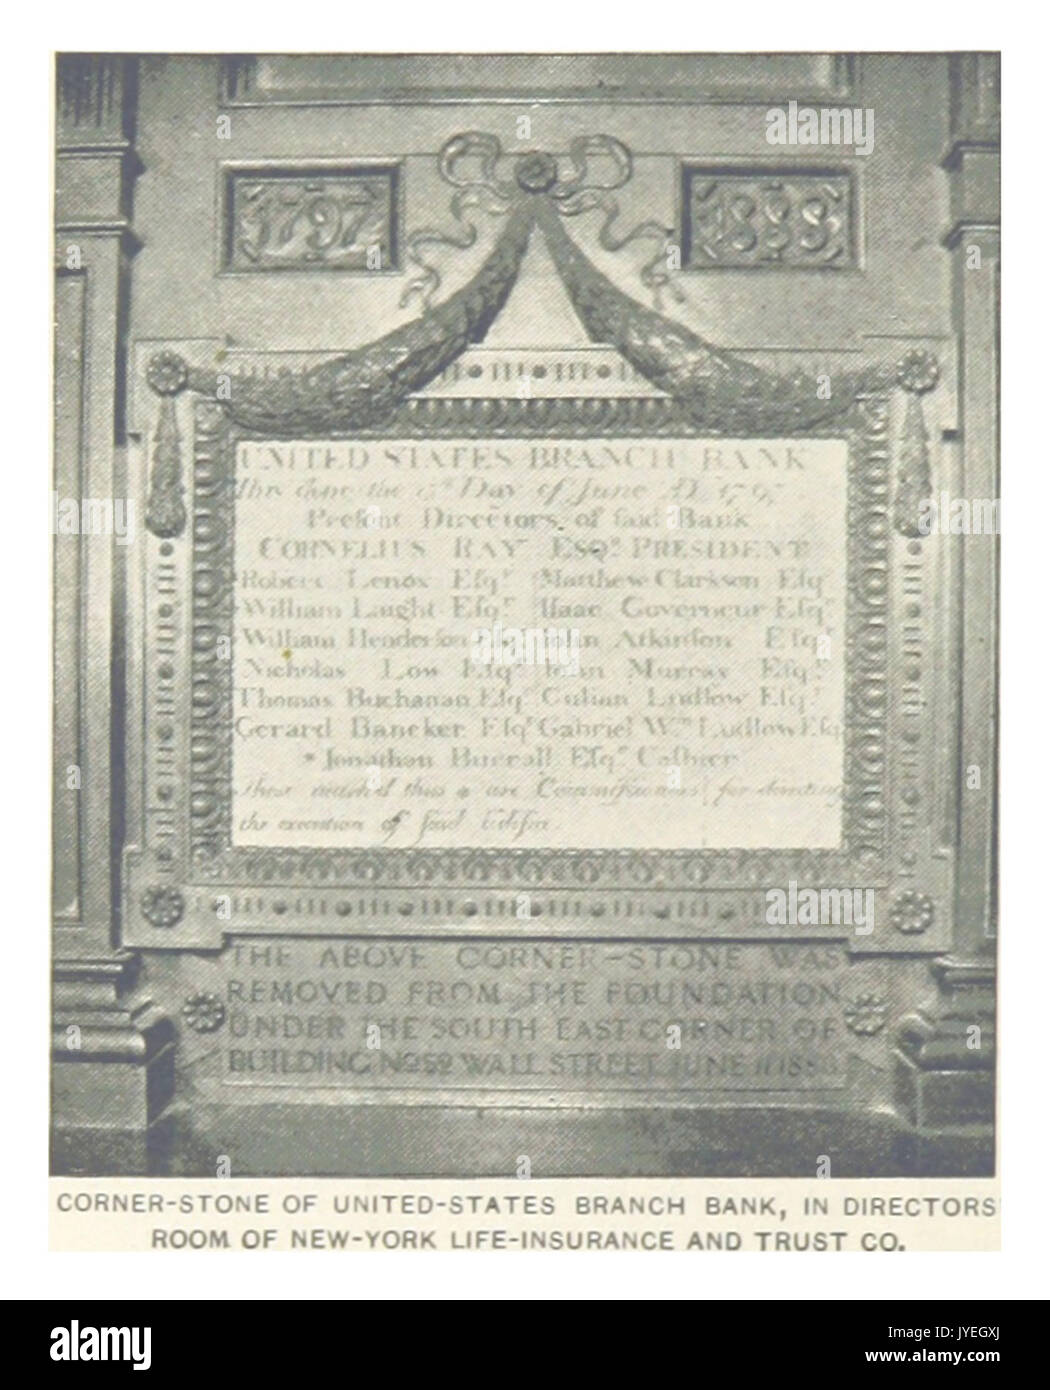 1797
1888
UNITED STATES BRANCH BANK
This done the Day of June AD 1797
Preſent Directors, of ſaid Bank
CORNELIUS RAY ESQR. PRESIDENT
Robert Lenox Eſqr. Matthew Clarkson Eſqr.
William Laight Eſqr. Iſaac Governeur Eſqr.
William Henderson Eſqr. John Atkinſon Eſqr.
Nicholas Low Eſqr. John Murray Eſqr.
Thomas Buchanan Eſqr. Culian Ludlow Eſqr.
Gerard Bancker Eſqr. Gabriel Wm. Ludlow Eſqr.
* Jonathan Burrall Eſqr. Caſhier
thoſe mark'd thus * are Commiſſioners for directing
the execution of ſaid Edifice.
THE ABOVE CORNER-STONE WAS
REMOVED FROM THE FOUNDATION
UNDER THE SOUTH EAST CORNER OF
BUILDING No. 52 WALL STREET JUNE 11 1888
CORNER-STONE OF UNITED-STATES BRANCH BANK, IN DIRECTORS'
ROOM OF NEW-YORK LIFE-INSURANCE AND TRUST CO.
alamy
alamy
alamy
alamy
alamy
Image ID: JYEGXJ
www.alamy.com